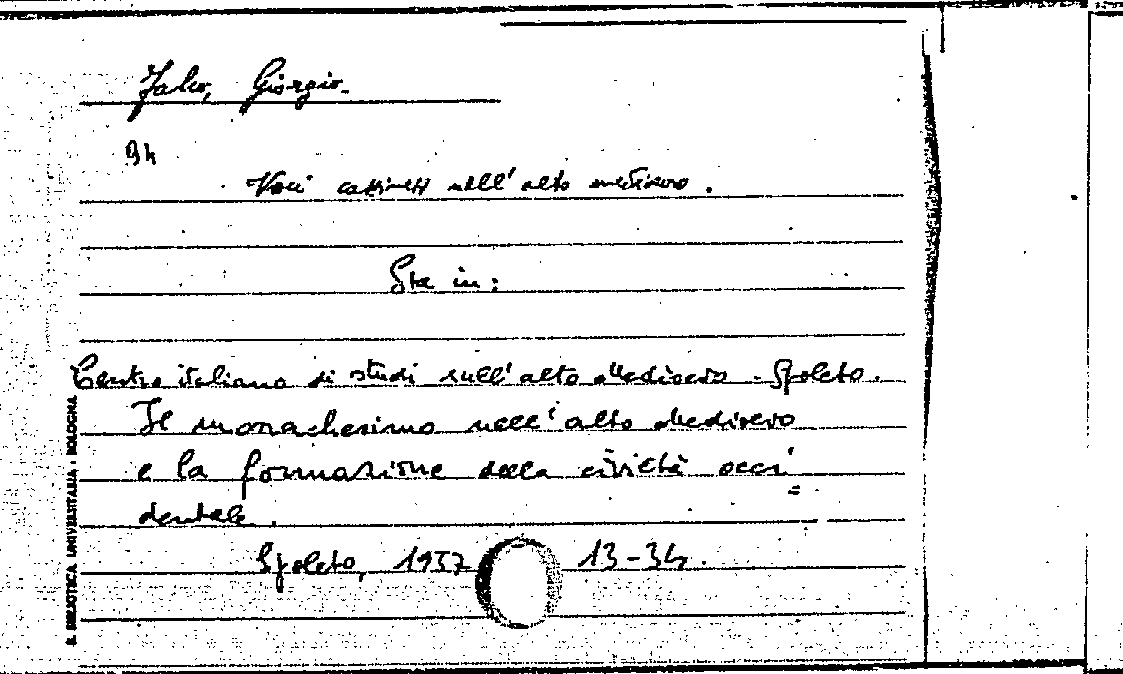 Falco, Giorgio.
94
Voci cassinesi nell'alto medioevo.
Sta in:
Centro italiano di studi sull'alto Medioevo - Spoleto.
Il monachesimo nell'alto Medioevo
e la formazione della civiltà occi=
dentale.
Spoleto, 1957 13-34.
B. BIBLIOTECA UNIVERSITARIA - BOLOGNA